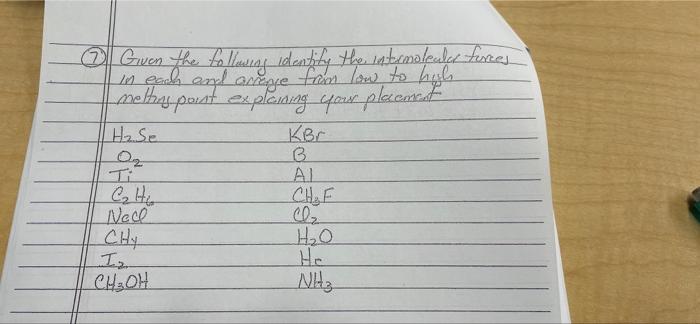 ⑦ Given the following identify the intermolecular forces
in each and arrange from low to high
melting point explaining your placement
H₂Se KBr
O₂ B
Ti Al
C₂H₆ CH₃F
NaCl Cl₂
CH₄ H₂O
I₂ He
CH₃OH NH₃